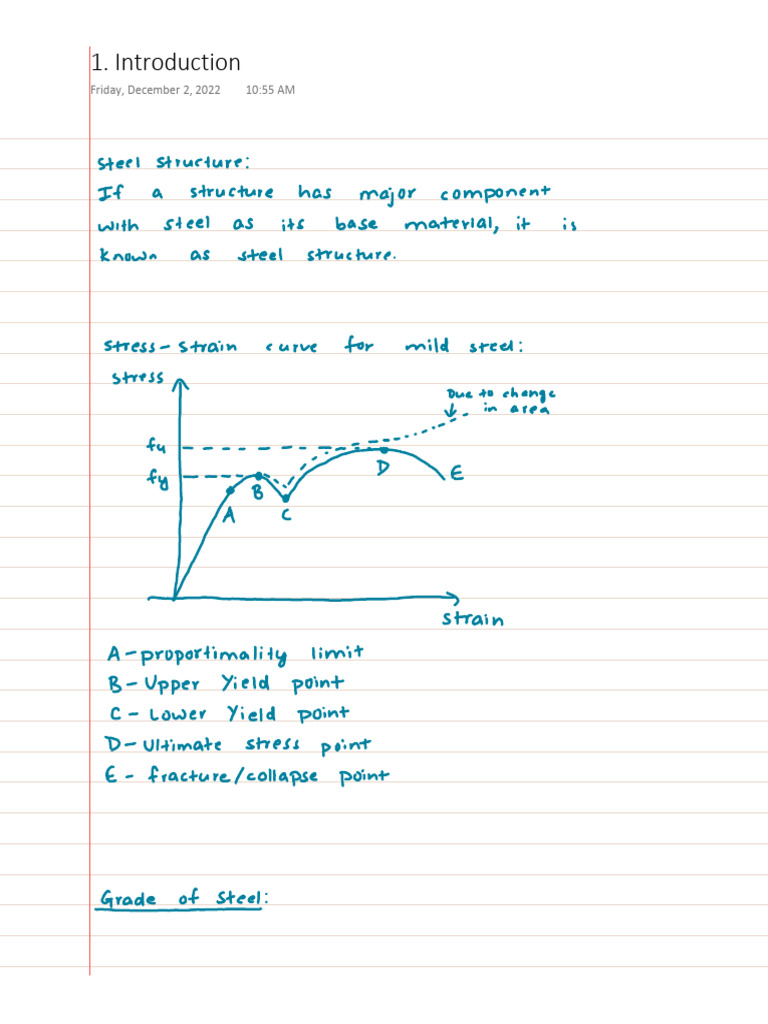 1. Introduction
Friday, December 2, 2022 10:55 AM
Steel structure:
If a structure has major component
with steel as its base material, it is
known as steel structure.
Stress-strain curve for mild steel:
Stress
Due to change
in area
fu
fy
A
B
C
D
E
Strain
A-proportimality limit
B-Upper Yield point
C-Lower Yield point
D-Ultimate stress point
E- fracture/collapse point
Grade of Steel: